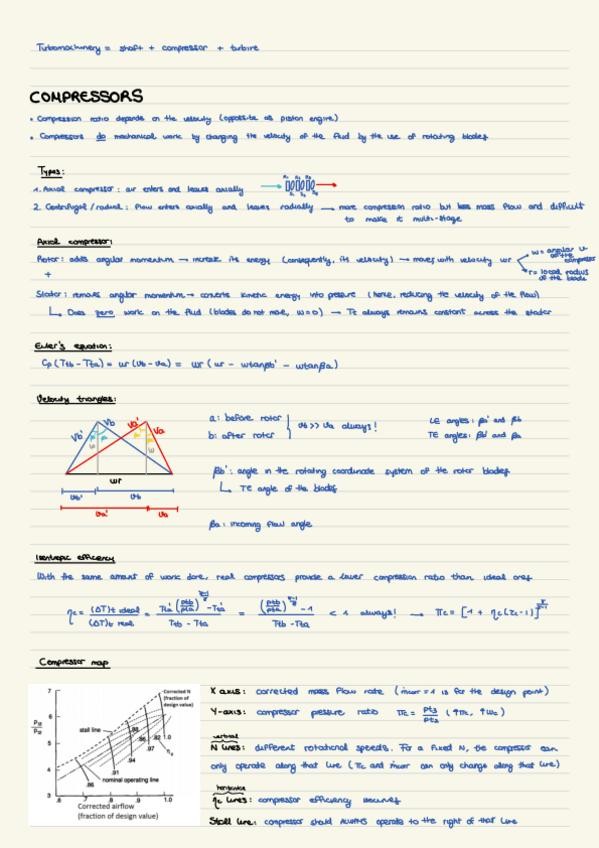 Turbomachinery = shaft + compressor + turbine
COMPRESSORS
• Compression ratio depends on the velocity (opposite as piston engine)
• Compressors do mechanical work by changing the velocity of the fluid by the use of rotating blades
Types:
1. Axial compressor: air enters and leaves axially
2. Centrifugal/radial: flow enters axially and leaves radially → more compression ratio but less mass flow and difficult
to make it multi-stage
Axial compressor:
Rotor: adds angular momentum → increase its energy (consequently, its velocity) → moves with velocity wr
w = angular v. of the compressor
r = local radius of the blade
+
Stator: removes angular momentum → converts kinetic energy into pressure (hence, reducing the velocity of the flow)
↳ Does zero work on the fluid (blades do not move, w=0) → Tt always remains constant across the stator
Euler's equation:
Cp (Ttb - Tta) = wr (vb - va) = wr (wr - wtanβb' - wtanβa)
Velocity triangles:
Vb' Vb Va' Va
wr
vb' vb
va' va
a: before rotor
b: after rotor
vb >> va always!
LE angles: βa' and βb
TE angles: βb' and βa
βb': angle in the rotating coordinate system of the rotor blades
↳ TE angle of the blades
βa: incoming flow angle
Isentropic efficiency
With the same amount of work done, real compressors provide a lower compression ratio than ideal ones
ηc = (ΔT)t ideal / (ΔT)t real = < 1 always! → πc = [1 + ηc(τc-1)]
Compressor map
Corrected N
(fraction of
design value)
stall line
nominal operating line
7
6
5
4
3
.86
.91
.94
.97
.92
1.0
ηc
.6 .7 .8 .9 1.0
Corrected airflow
(fraction of design value)
X axis: corrected mass flow rate (ṁcorr = 1 is for the design point)
Y-axis: compressor pressure ratio πc = pt3/pt2 (↑πc, ↑wc)
vertical
N lines: different rotational speeds. For a fixed N, the compressor can
only operate along that line (πc and ṁcorr can only change along that line)
horizontal
ηc lines: compressor efficiency
Stall line: compressor should ALWAYS operate to the right of that line